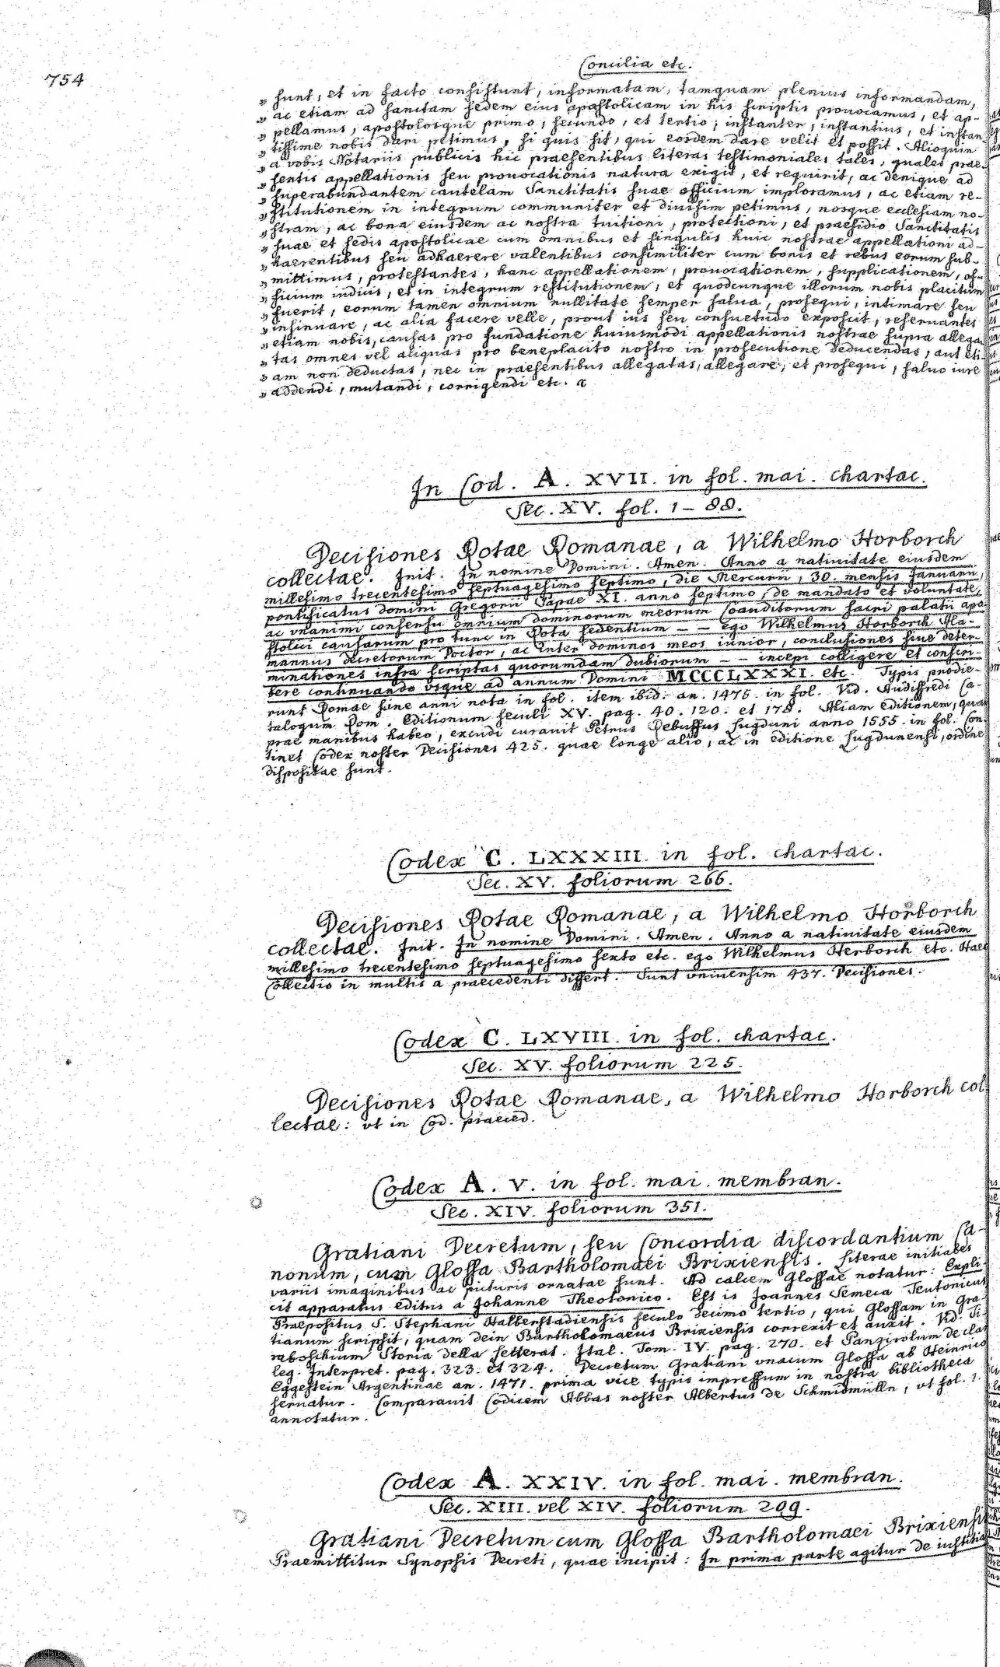 754
Concilia etc.
" sunt, et in facto consistunt, informatam, tamquam plenius informandam,
" ac etiam ad sanctam sedem eius apostolicam in his scriptis prouocamus, et ap-
" pellamus, apostolosque primo, secundo, et tertio; instanter, instantius, et instan
" tissime nobis dari petimus, si quis sit, qui eosdem dare velit et possit. Alioquin
" a vobis Notariis publicis hic praesentibus literas testimoniales tales, quales prae-
" sentis appellationis seu prouocationis natura exigit, et requirit, ac denique ad
" superabundantem cautelam Sanctitatis suae officium imploramus, ac etiam re-
" stitutionem in integrum communiter et diuisim petimus, nosque ecclesiam no-
" stram, ac bona eiusdem ac nostra tuitioni, protectioni, et praesidio Sanctitatis
" suae et sedis apostolicae cum omnibus et singulis huic nostrae appellationi ad-
" haerentibus seu adhaerere valentibus consimiliter cum bonis et rebus eorum sub-
" mittimus, protestantes, hanc appellationem, prouocationem, supplicationem, of-
" ficium iudicis, et in integrum restitutionem, et quodcunque illorum nobis placitum
" fuerit, eorum tamen omnium nullitate semper salua, prosequi, intimare seu
" insinuare, ac alia facere velle, prout ius seu consuetudo exposcit, reseruantes
" etiam nobis, causas pro fundatione huiusmodi appellationis nostrae supra allega
" tas omnes vel aliquas pro beneplacito nostro in prosecutione deducendas, aut eti-
" am non deductas, nec in praesentibus allegatas, allegare, et prosequi, saluo iure
" addendi, mutandi, corrigendi etc.
In Cod. A. XVII. in fol. mai. chartac.
Sec. XV. fol. 1 - 88.
Decisiones Rotae Romanae, a Wilhelmo Horborch
collectae. Init. In nomine Domini. Amen. Anno a natiuitate eiusdem
millesimo trecentesimo septuagesimo septimo, die Mercurii, 30. mensis Januarii,
pontificatus domini Gregorii Papae XI. anno septimo, de mandato et voluntate,
ac vnanimi consensu omnium dominorum meorum Coauditorum sacri palatii apo
stolici causarum pro tunc in Rota sedentium — — ego Wilhelmus Horborch Ala-
mannus decretorum Doctor, ac inter dominos meos iunior, conclusiones siue deter-
minationes infra scriptas quorumdam dubiorum — — incepi colligere et conscri-
bere continuando vsque ad annum Domini MCCCLXXXI. etc. Typis prodie-
runt Romae sine anni nota in fol. item ibid. an. 1475. in fol. Vid. Audiffredi Ca-
talogum Rom. Editionum seculi XV. pag. 40. 120. et 178. Aliam editionem, quam
prae manibus habeo, excudi curauit Petrus Rebuffus Lugduni anno 1555. in fol. Con-
tinet Codex noster Decisiones 425. quae longe alio, ac in editione Lugdunensi, ordine
dispositae sunt.
Codex C. LXXXIII. in fol. chartac.
Sec. XV. foliorum 266.
Decisiones Rotae Romanae, a Wilhelmo Horborch
collectae. Init. In nomine Domini. Amen. Anno a natiuitate eiusdem
millesimo trecentesimo septuagesimo sexto etc. ego Wilhelmus Herborch etc. Haec
Collectio in multis a praecedenti differt. Sunt vniuersim 437. Decisiones.
Codex C. LXVIII. in fol. chartac.
Sec. XV. foliorum 225.
Decisiones Rotae Romanae, a Wilhelmo Horborch col
lectae: vt in Cod. praeced.
Codex A. V. in fol. mai. membran.
Sec. XIV. foliorum 351.
Gratiani Decretum, seu Concordia discordantium Ca-
nonum, cum Glossa Bartholomaei Brixiensis. Literae initiales
variis imaginibus ac picturis ornatae sunt. Ad calcem Glossae notatur: Expli-
cit apparatus editus a Johanne Theotonico. Est is Joannes Semeca Teutonicus
Praepositus S. Stephani Halberstadiensis seculo decimo tertio, qui Glossam in Gra-
tianum scripsit, quam dein Bartholomaeus Brixiensis correxit et auxit. Vid. Ti-
raboschium Storia della Letterat. Ital. Tom. IV. pag. 270. et Panzirolum de clar.
leg. Interpret. pag. 323. et 324. Decretum Gratiani vnacum Glossa ab Heinrico
Eggestein Argentinae an. 1471. prima vice typis impressum in nostra bibliotheca
seruatur. Comparauit Codicem Abbas noster Albertus de Schmidmülln, vt fol. 1.
annotatur.
Codex A. XXIV. in fol. mai. membran.
Sec. XIII. vel XIV. foliorum 209.
Gratiani Decretum cum Glossa Bartholomaei Brixiensis
Praemittitur Synopsis Decreti, quae incipit: In prima parte agitur de iustitia